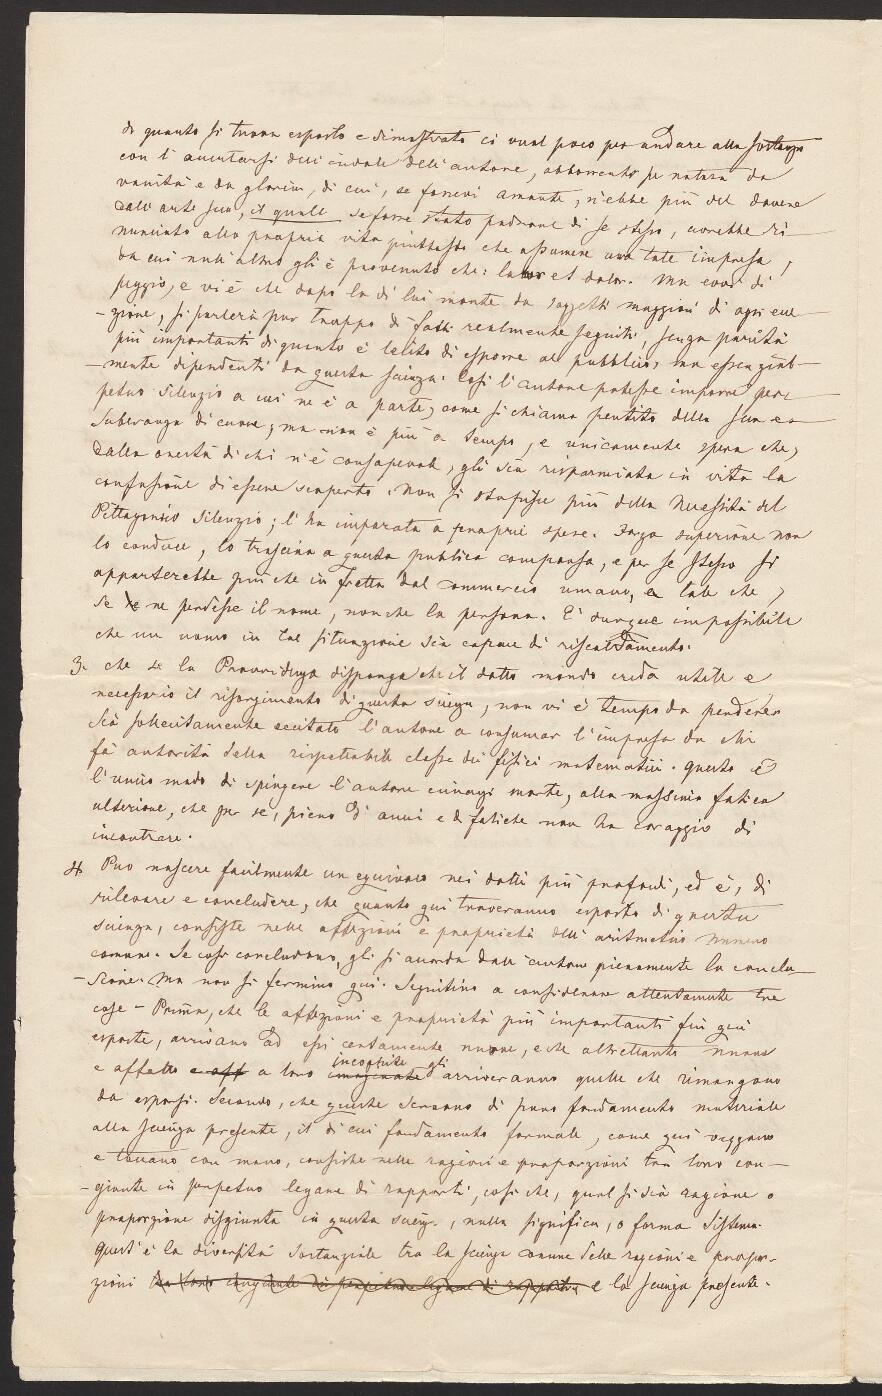 di quanto si trova esposto e dimostrato ci vuol poco per andare alla sostanza
con l'accertarsi dell'indole dell'autore, abborrente per natura da
vanità e da gloria, di cui, se fossevi amante, n'ebbe più del dovere
dall'arte sua, il quale se fosse stato padrone di se stesso, avrebbe ri-
nunciato alla propria vita piuttosto che assumere una tale impresa,
da cui null'altro gli è provenuto che: labor et dolor. Ma evvi di
peggio, e vi è che dopo la di lui morte da soggetti maggiori di ogni ecce-
-zione, si parlerà pur troppo di fatti realmente seguiti, senza parità
più importanti di quanto è lecito di esporre al pubblico, ma essenzial-
-mente dipendenti da questa scienza. Così l'autore potesse imporre per-
petuo silenzio a chi ne è a parte, come si chiama pentito della sua es-
suberanza di cuore; ma non è più a tempo, e unicamente spera che,
dalla onestà di chi n'è consapevole, gli sia risparmiata in vita la
confusione di essere scoperto. Non si stupisce più della necessità del
Pittagorico silenzio; l'ha imparata a proprie spese. Forza superiore non
lo conduce, lo trascina a questa pubblica comparsa, e per se stesso si
apparterebbe più che in fretta dal commercio umano, e tale che,
se ne perdesse il nome, nonche la persona. È dunque impossibile
che un uomo in tal situazione sia capace di riscaldamento.
3. che se la Provvidenza disponga che il dotto mondo creda utile e
necessario il risorgimento di questa scienza, non vi è tempo da perdere
Sia sollecitamente eccitato l'autore a consumar l'impresa da chi
fà autorità della rispettabile classe dei fisici matematici. questo è
l'unico modo di spingere l'autore innanzi morte, alla massima fatica
ulteriore, che per se, pieno d'anni e di fatiche non ha coraggio di
incontrare.
4 Può nascere facilmente un equivoco nei dotti più profondi, ed è, di
rilevare e concludere, che quanto qui troveranno esposto di questa
scienza, consiste nelle affezioni e proprietà dell'aritmetico numero
comune. Se così concludono, gli si accorda dall'autore pienamente la conclu-
-sione. Ma non si fermino qui. Seguitino a considerare attentamente tre
cose - Prima, che le affezioni e proprietà più importanti fin quì
esposte, arrivano ad essi certamente nuove, e che altrettanto nuove
e affatto e aff a loro imaginate incognite gli arriveranno quelle che rimangono
da esporsi. Secondo, che queste servono di puro fondamento materiale
alla scienza presente, il di cui fondamento formale, come quì veggono
e toccano con mano, consiste nelle ragioni e proporzioni tra loro con-
-giunte in perpetuo legame di rapporti, così che, qual si sia ragione o
proporzione disgiunta in questa scienz., nulla significa, o forma sistema.
quest'è la diversità sostanziale tra la scienza comune delle ragioni e propor-
zioni tra loro congiunte in perpetuo legame di rapporti e la scienza presente.